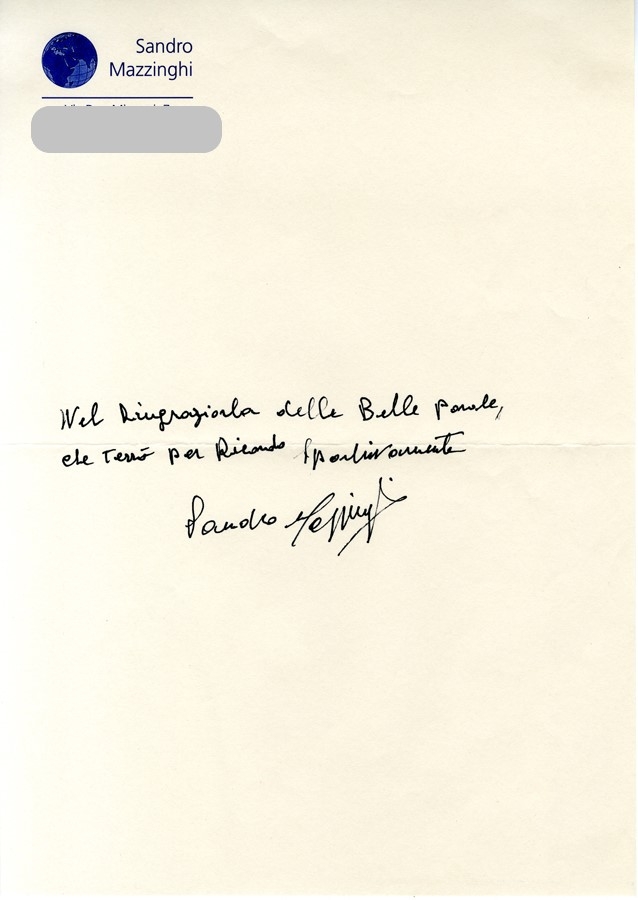 Sandro
Mazzinghi
Nel Ringraziarla delle Belle parole,
che Terrò per Ricordo Sportivamente
Sandro Mazzinghi